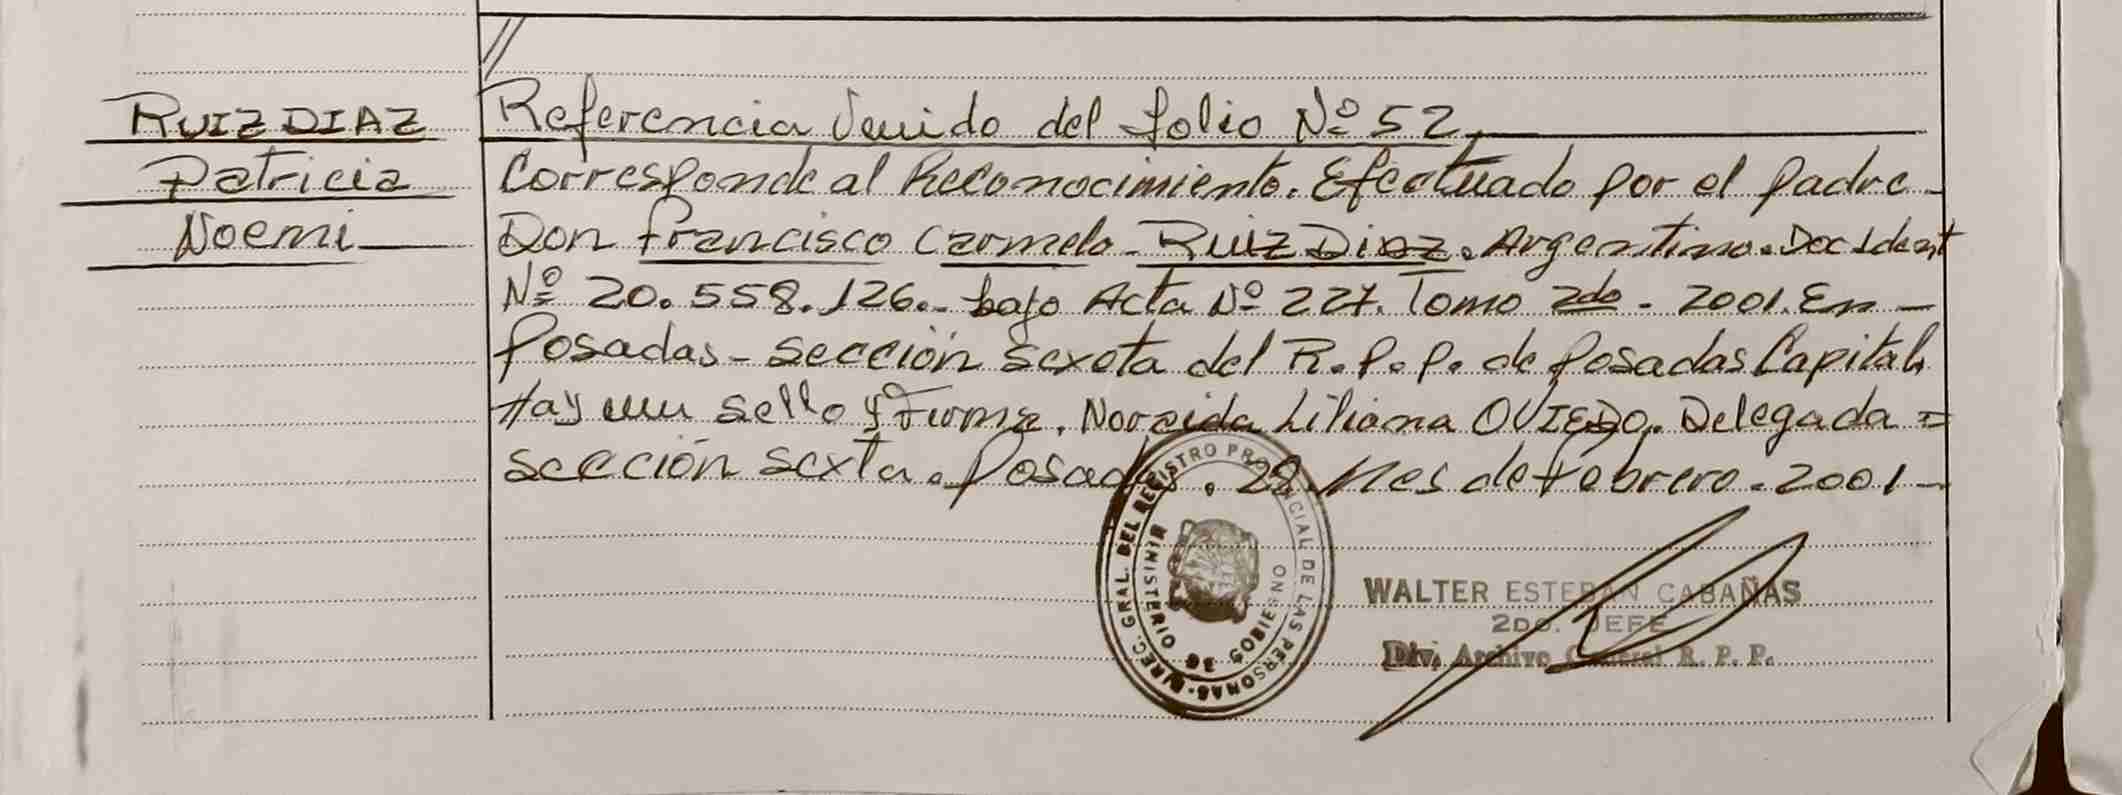 //
RUIZ DIAZ
Patricia
Noemi
Referencia Venido del folio Nº 52,
Corresponde al Reconocimiento. Efectuado por el padre -
Don Francisco Carmelo - Ruiz Diaz. Argentino. Doc Ident
Nº 20.558.126.- bajo Acta Nº 227. Tomo 2do - 2001. En -
Posadas - sección sexeta del R.P.P. de Posadas Capital.
Hay un sello y Firma. Noraida Liliana OVIEDO. Delegada =
sección sexta. Posadas. 28. Mes de Febrero - 2001 -
DIREC. GRAL. DEL REGISTRO PROVINCIAL DE LAS PERSONAS
MINISTERIO DE GOBIERNO
WALTER ESTEBAN CABAÑAS
2DO. JEFE
Div. Archivo General R. P. P.